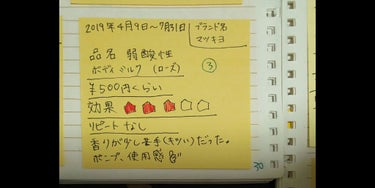 2019年4月9日～7月31日
ブランド名
マツキヨ
品名 弱酸性
ボディミルク (ローズ)
③
¥500円くらい
効果
リピート なし
香りが少し苦手(キツい)だった。
ポンプ、使用感
30